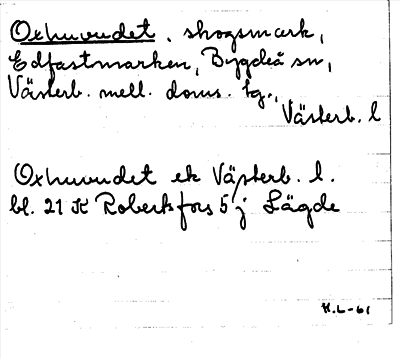 Oxhuvudet, skogsmark,
Edfastmarken, Bygdeå sn,
Västerb. mell. doms. tg.,
Västerb. l
Oxhuvudet ek Västerb. l.
bl. 21 K Robertsfors 5 j Lägde
K.L-61